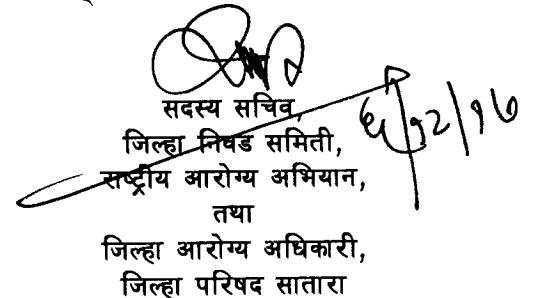 सदस्य सचिव,
जिल्हा निवड समिती,
राष्ट्रीय आरोग्य अभियान,
तथा
जिल्हा आरोग्य अधिकारी,
जिल्हा परिषद सातारा